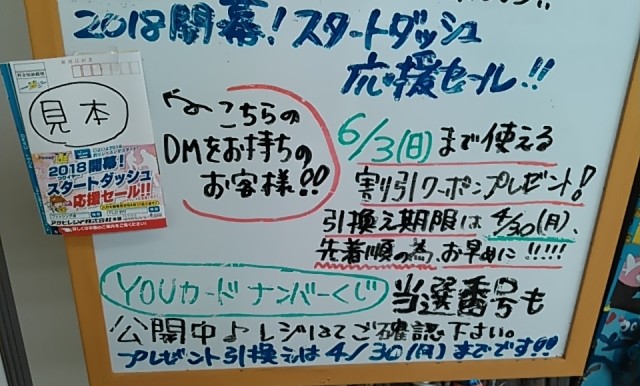 2018開幕!スタートダッシュ
応援セール!!
見本
2018開幕!
スタートダッシュ
応援セール!!
こちらの
DMをお持ちの
お客様!!
6/3(日)まで使える
割引クーポンプレゼント!
引換え期限は4/30(月)、
先着順の為、お早めに!!!!!
YOUカードナンバーくじ 当選番号も
公開中♪レジにてご確認下さい。
プレゼント引換えは4/30(月)までです!!